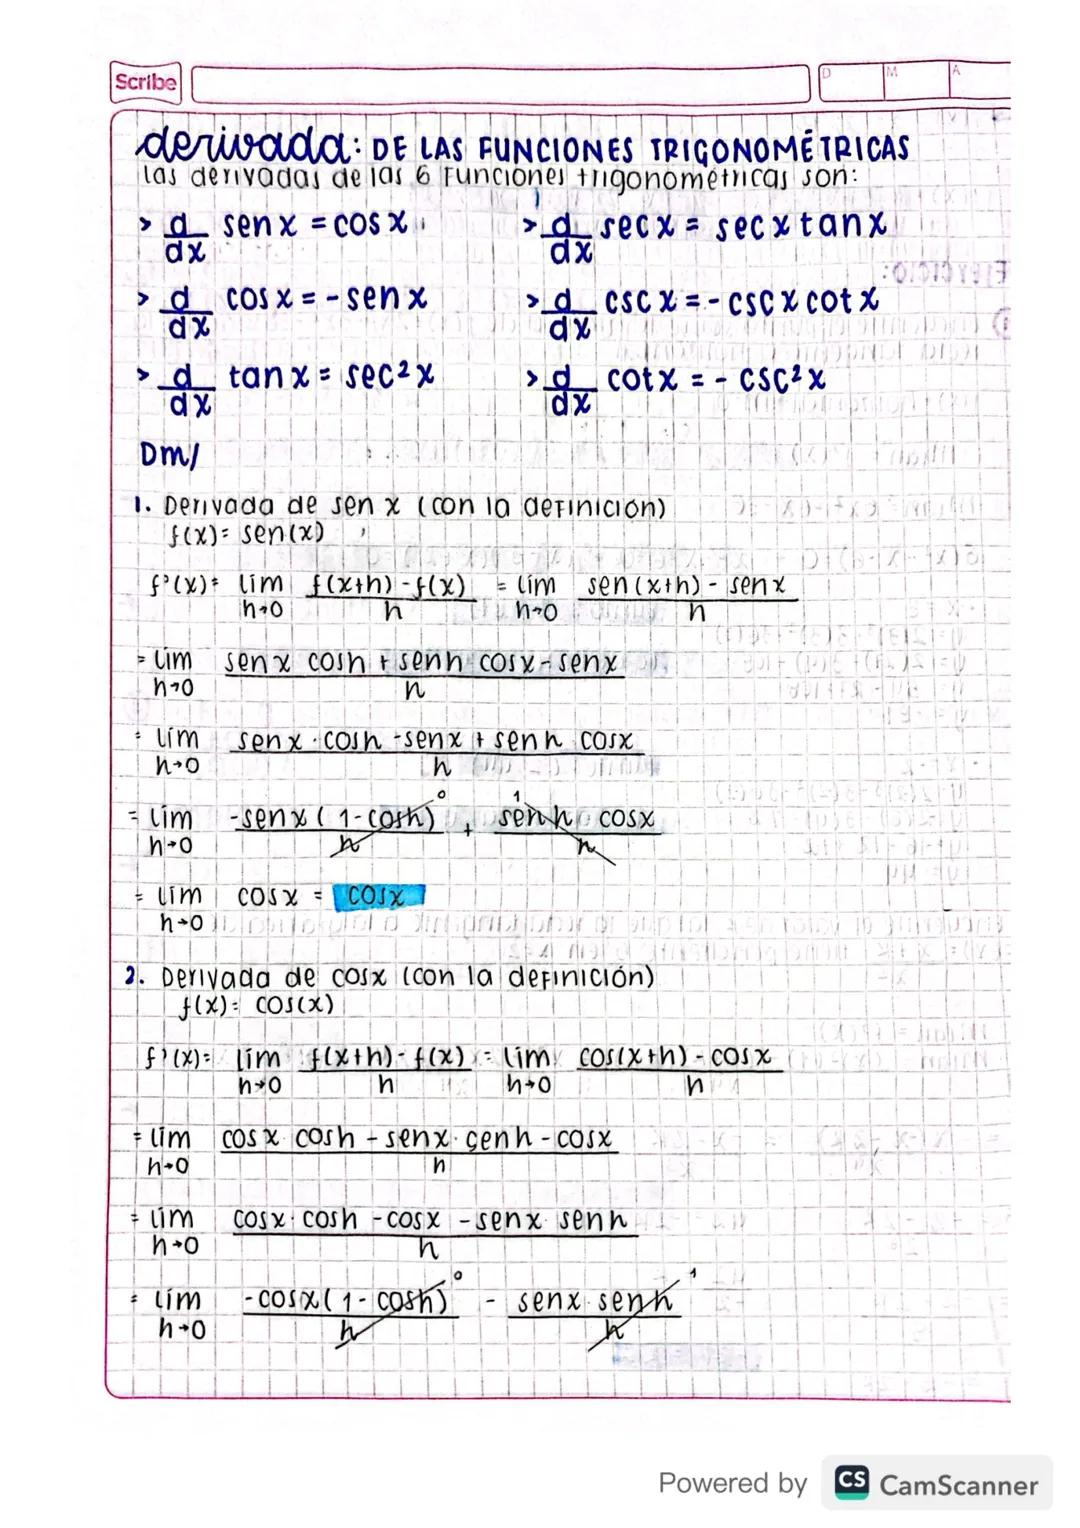 Scribe
D M A
derivada: DE LAS FUNCIONES TRIGONOMÉTRICAS
las derivadas de las 6 funciones trigonométricas son:
> d/dx sen x = cos x > d/dx sec x = sec x tan x
> d/dx cos x = - sen x > d/dx csc x = - csc x cot x
> d/dx tan x = sec² x > d/dx cot x = - csc² x
Dm/
1. Derivada de sen x (con la definición)
f(x) = sen(x)
f'(x) = lím h→0 f(x+h) - f(x) / h = lím h→0 sen(x+h) - sen x / h
= lím h→0 sen x cosh + senh cosx - senx / h
= lím h→0 senx · cosh - senx + senh cosx / h
= lím h→0 -senx (1 - cosh) / h 0 + 1 senh cosx / h
= lím h→0 cosx = cosx
2. Derivada de cosx (con la definición)
f(x) = cos(x)
f'(x) = lím h→0 f(x+h) - f(x) / h = lím h→0 cos(x+h) - cosx / h
= lím h→0 cosx · cosh - senx · senh - cosx / h
= lím h→0 cosx · cosh - cosx - senx · senh / h
= lím h→0 -cosx (1 - cosh) / h 0 - senx · senh / h 1
Powered by CS CamScanner